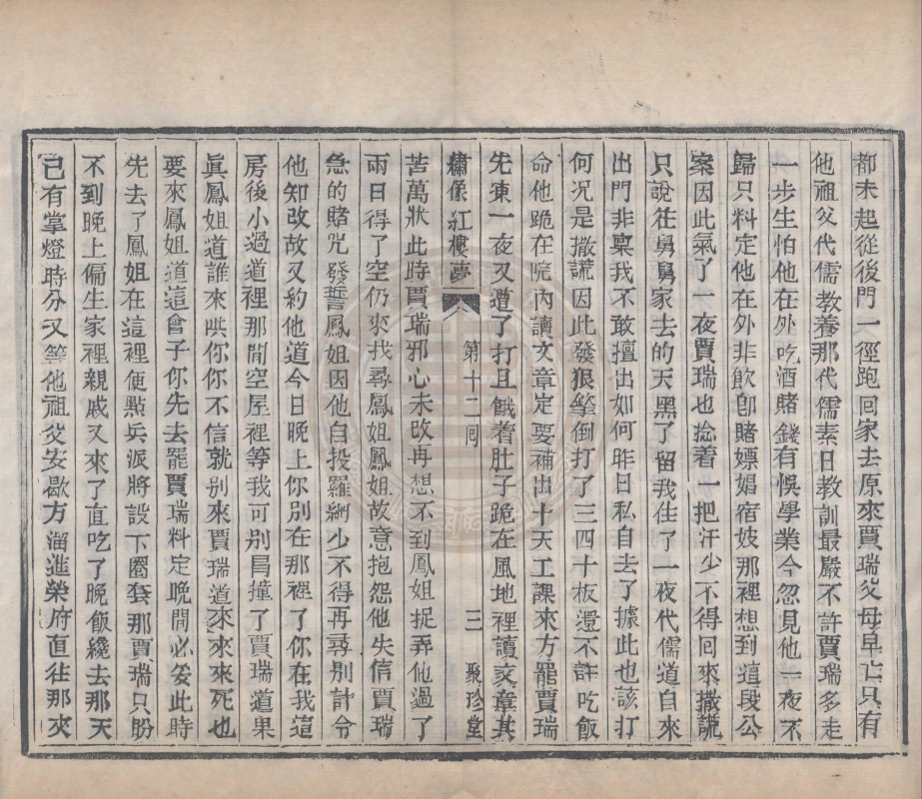 都未起從後門一徑跑回家去原來賈瑞父母早亡只有
他祖父代儒教養那代儒素日教訓最嚴不許賈瑞多走
一步生怕他在外吃酒賭錢有悞學業今忽見他一夜不
歸只料定他在外非飲卽賭嫖娼宿妓那裡想到這段公
案因此氣了一夜賈瑞也捻着一把汗少不得回來撒謊
只說徃舅舅家去的天黑了留我住了一夜代儒道自來
出門非稟我不敢擅出如何昨日私自去了據此也該打
何况是撒謊因此發狠拏倒打了三四十板還不許吃飯
命他跪在院內讀文章定要補出十天工課來方罷賈瑞
先凍一夜又遭了打且餓着肚子跪在風地裡讀文章其
繡像紅樓夢 第十二囘 三 聚珍堂
苦萬狀此時賈瑞邪心未改再想不到鳳姐捉弄他過了
兩日得了空仍來找尋鳳姐鳳姐故意抱怨他失信賈瑞
急的賭咒發誓鳳姐因他自投羅網少不得再尋别計令
他知改故又約他道今日晚上你别在那裡了你在我這
房後小過道裡那間空屋裡等我可别冒撞了賈瑞道果
眞鳳姐道誰來哄你你不信就别來賈瑞道來來來死也
要來鳳姐道這會子你先去罷賈瑞料定晚間必妥此時
先去了鳳姐在這裡便點兵派將設下圈套那賈瑞只盼
不到晚上偏生家裡親戚又來了直吃了晚飯纔去那天
已有掌燈時分又等他祖父安歇方溜進榮府直往那夾